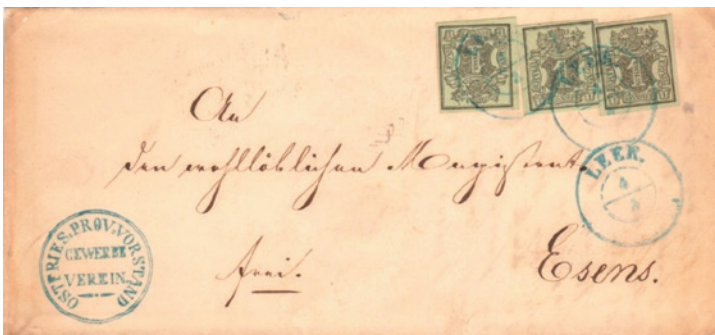 LEER.
An
den wohllöblichen Magistrat
LEER.
4
frei.
Esens.
OSTFRIES. PROV. VORSTAND
GEWERBE
VEREIN.